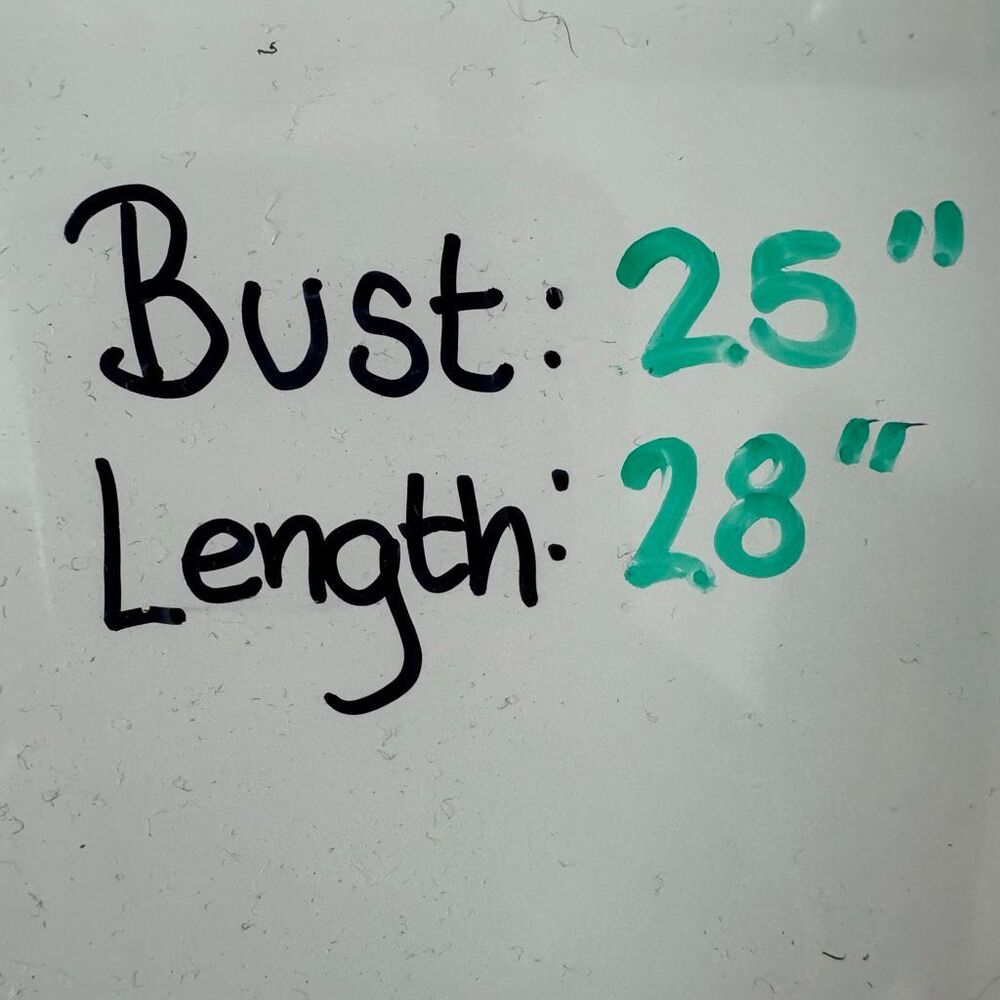 Bust: 25"
Length: 28"